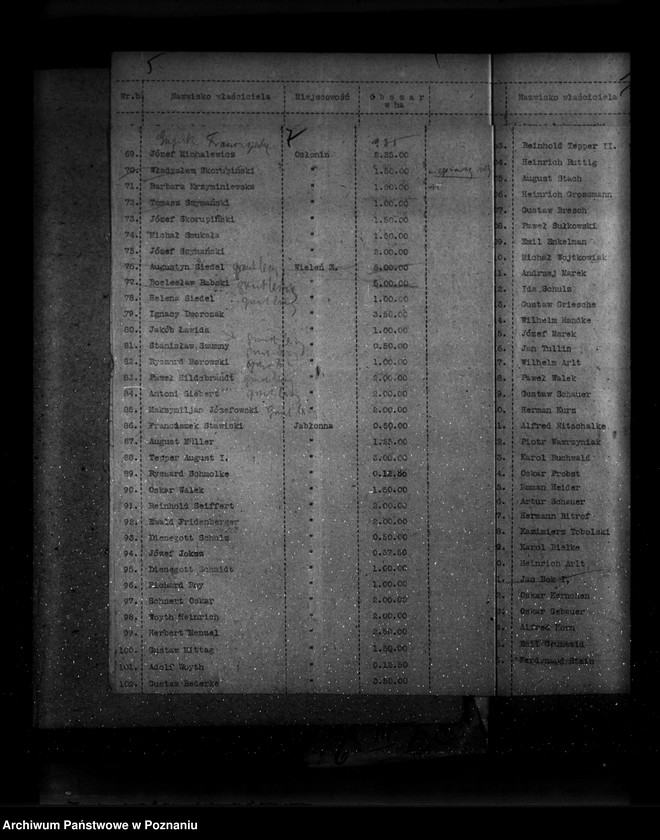 5
Nr.b. Nazwisko właściciela Miejscowość Obszar w ha
69. Józef Michalewicz Osłonin 2.25.00
70. Władysław Skorupiński " 1.50.00
71. Barbara Krzyminiewska " 1.00.00
72. Tomasz Szymański " 1.00.00
73. Józef Skorupiński " 1.50.00
74. Michał Szukała " 1.50.00
75. Józef Szymański " 2.00.00
76. Augustyn Siedel Wieleń Z. 5.00.00
77. Bolesław Babski " 5.00.00
78. Helena Siedel " 1.00.00
79. Ignacy Dworczak " 3.50.00
80. Jakób Ławida " 1.00.00
81. Stanisław Szumny " 0.50.00
82. Ryszard Borowski " 1.00.00
83. Paweł Hildebrandt " 2.00.00
84. Antoni Giebert " 2.00.00
85. Maksymiljan Józefowski " 2.00.00
86. Franciszek Stawicki Jabłonna 0.50.00
87. August Müller " 1.25.00
88. Tepper August I. " 3.00.00
89. Ryszard Schmolke " 0.12.50
90. Oskar Walek " 1.50.00
91. Reinhold Seiffert " 2.00.00
92. Ewald Fridenberger " 2.00.00
93. Dienegott Schulz " 0.50.00
94. Józef Joksz " 0.37.50
95. Dienegott Schmidt " 1.00.00
96. Richard Fry " 1.00.00
97. Schnert Oskar " 2.00.00
98. Woyth Heinrich " 2.00.00
99. Herbert Menzel " 2.50.00
100. Gustaw Mittag " 1.50.00
101. Adolf Woyth " 0.12.50
102. Gustaw Bederke " 3.50.00
Nazwisko właściciela
Reinhold Tepper II.
Heinrich Ruttig
August Stach
Heinrich Grossmann
Gustaw Bresch
Paweł Sułkowski
Emil Enkelman
Michał Wojtkowiak
Andrzej Marek
Ida Schulz
Gustaw Griesche
Wilhelm Handke
Józef Marek
Jan Tullin
Wilhelm Arlt
Paweł Walek
Gustaw Schauer
Herman Kurz
Alfred Nitschalke
Piotr Wawrzyniak
Karol Buchwald
Oskar Probst
Roman Heider
Artur Schauer
Hermann Bitrof
Kazimierz Tobolski
Karol Bielke
Heinrich Arlt
Jan Bok I.
Oskar Kernchen
Oskar Gebauer
Alfred Horn
Emil Grunwald
Ferdynand Stein
Archiwum Państwowe w Poznaniu